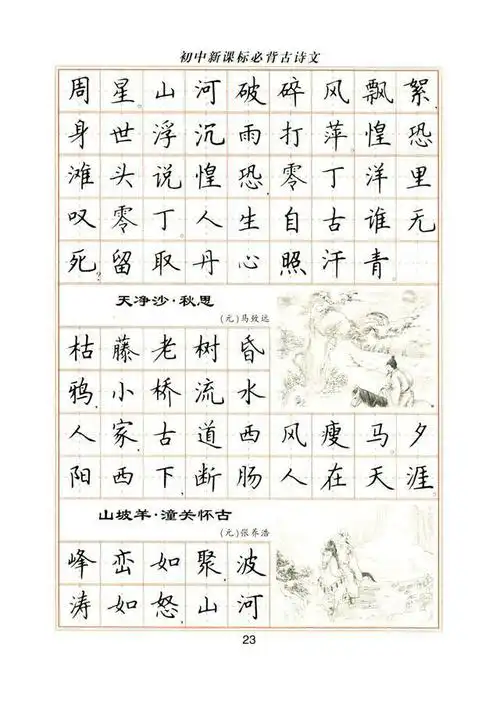 初中新课标必背古诗文
周星。山河破碎风飘絮
身世浮沉雨打萍。惶恐
滩头说惶恐，零丁洋里
叹零丁。人生自古谁无
死？留取丹心照汗青。
天净沙·秋思
(元)马致远
枯藤老树昏
鸦，小桥流水
人家，古道西风瘦马。夕
阳西下，断肠人在天涯。
山坡羊·潼关怀古
(元)张养浩
峰峦如聚，波
涛如怒，山河
23